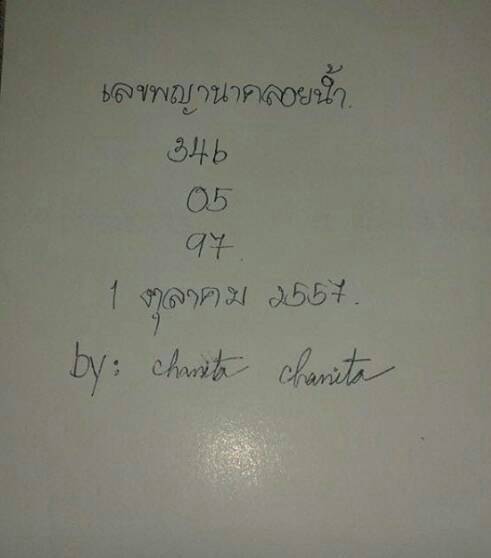 เลขพญานาคลอยน้ำ.
346
05
97.
1 ตุลาคม 2557.
by: chanita chanita